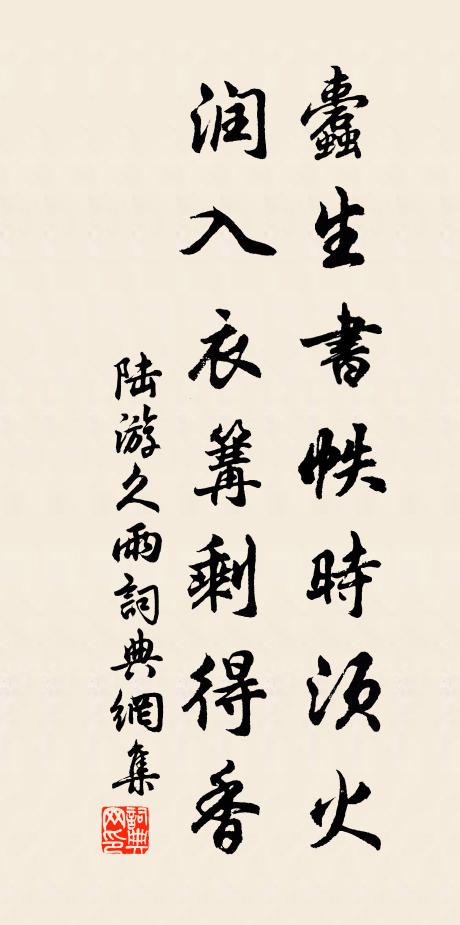 蠹生書帙時須火
润入衣篝剩得香
陆游久雨詞典網集
詞典网印